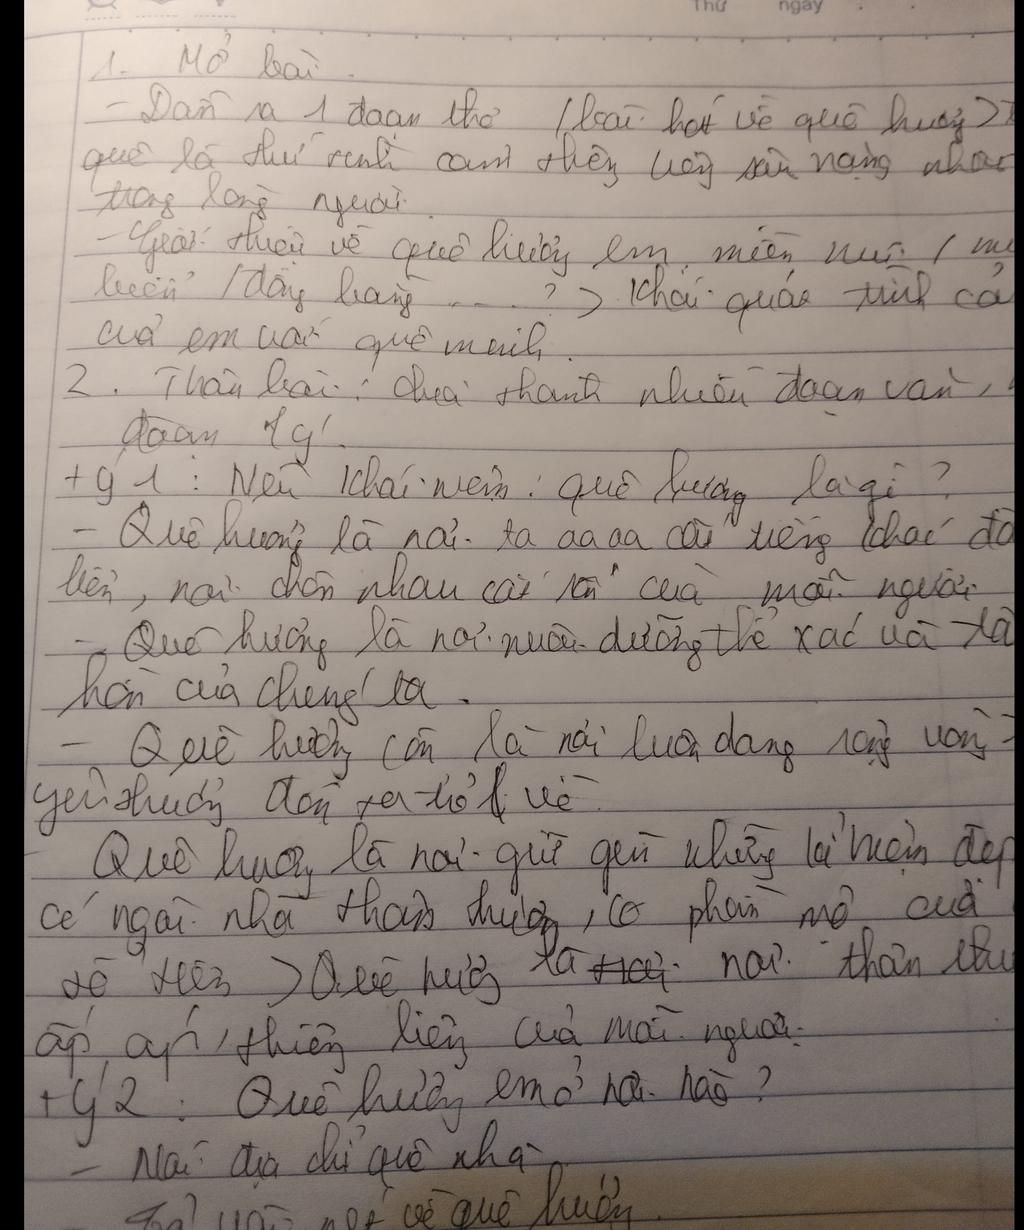 Thứ ngày
1. Mở bài.
- Dẫn ra 1 đoạn thơ / bài hát về quê hương >
quê là thứ tình cảm thiêng liêng sâu nặng nhất
trong lòng người.
- Giới thiệu về quê hương em miền núi /
biển / đồng bằng ....? > Khái quát tình cả
của em với quê mình.
2. Thân bài: chia thành nhiều đoạn văn,
đoạn 1 ý.
+ Ý 1 : Nêu khái niệm: quê hương là gì?
- Quê hương là nơi ta oa oa cất tiếng khóc đầ
tiên, nơi chôn nhau cắt rốn của mỗi người
- Quê hương là nơi nuôi dưỡng thể xác và tâ
hồn của chúng ta.
- Quê hương còn là nơi luôn dang rộng vòng
yêu thương đón ta trở về.
Quê hương là nơi giữ gìn những kỉ niệm đẹp
có ngôi nhà thân thương, có phần mộ của
tổ tiên > Quê hương là nơi thân thu
ấm áp, thiêng liêng của mỗi người.
+ Ý 2 : Quê hương em ở nơi nào?
- Nơi địa chỉ quê nhà
về quê hương.